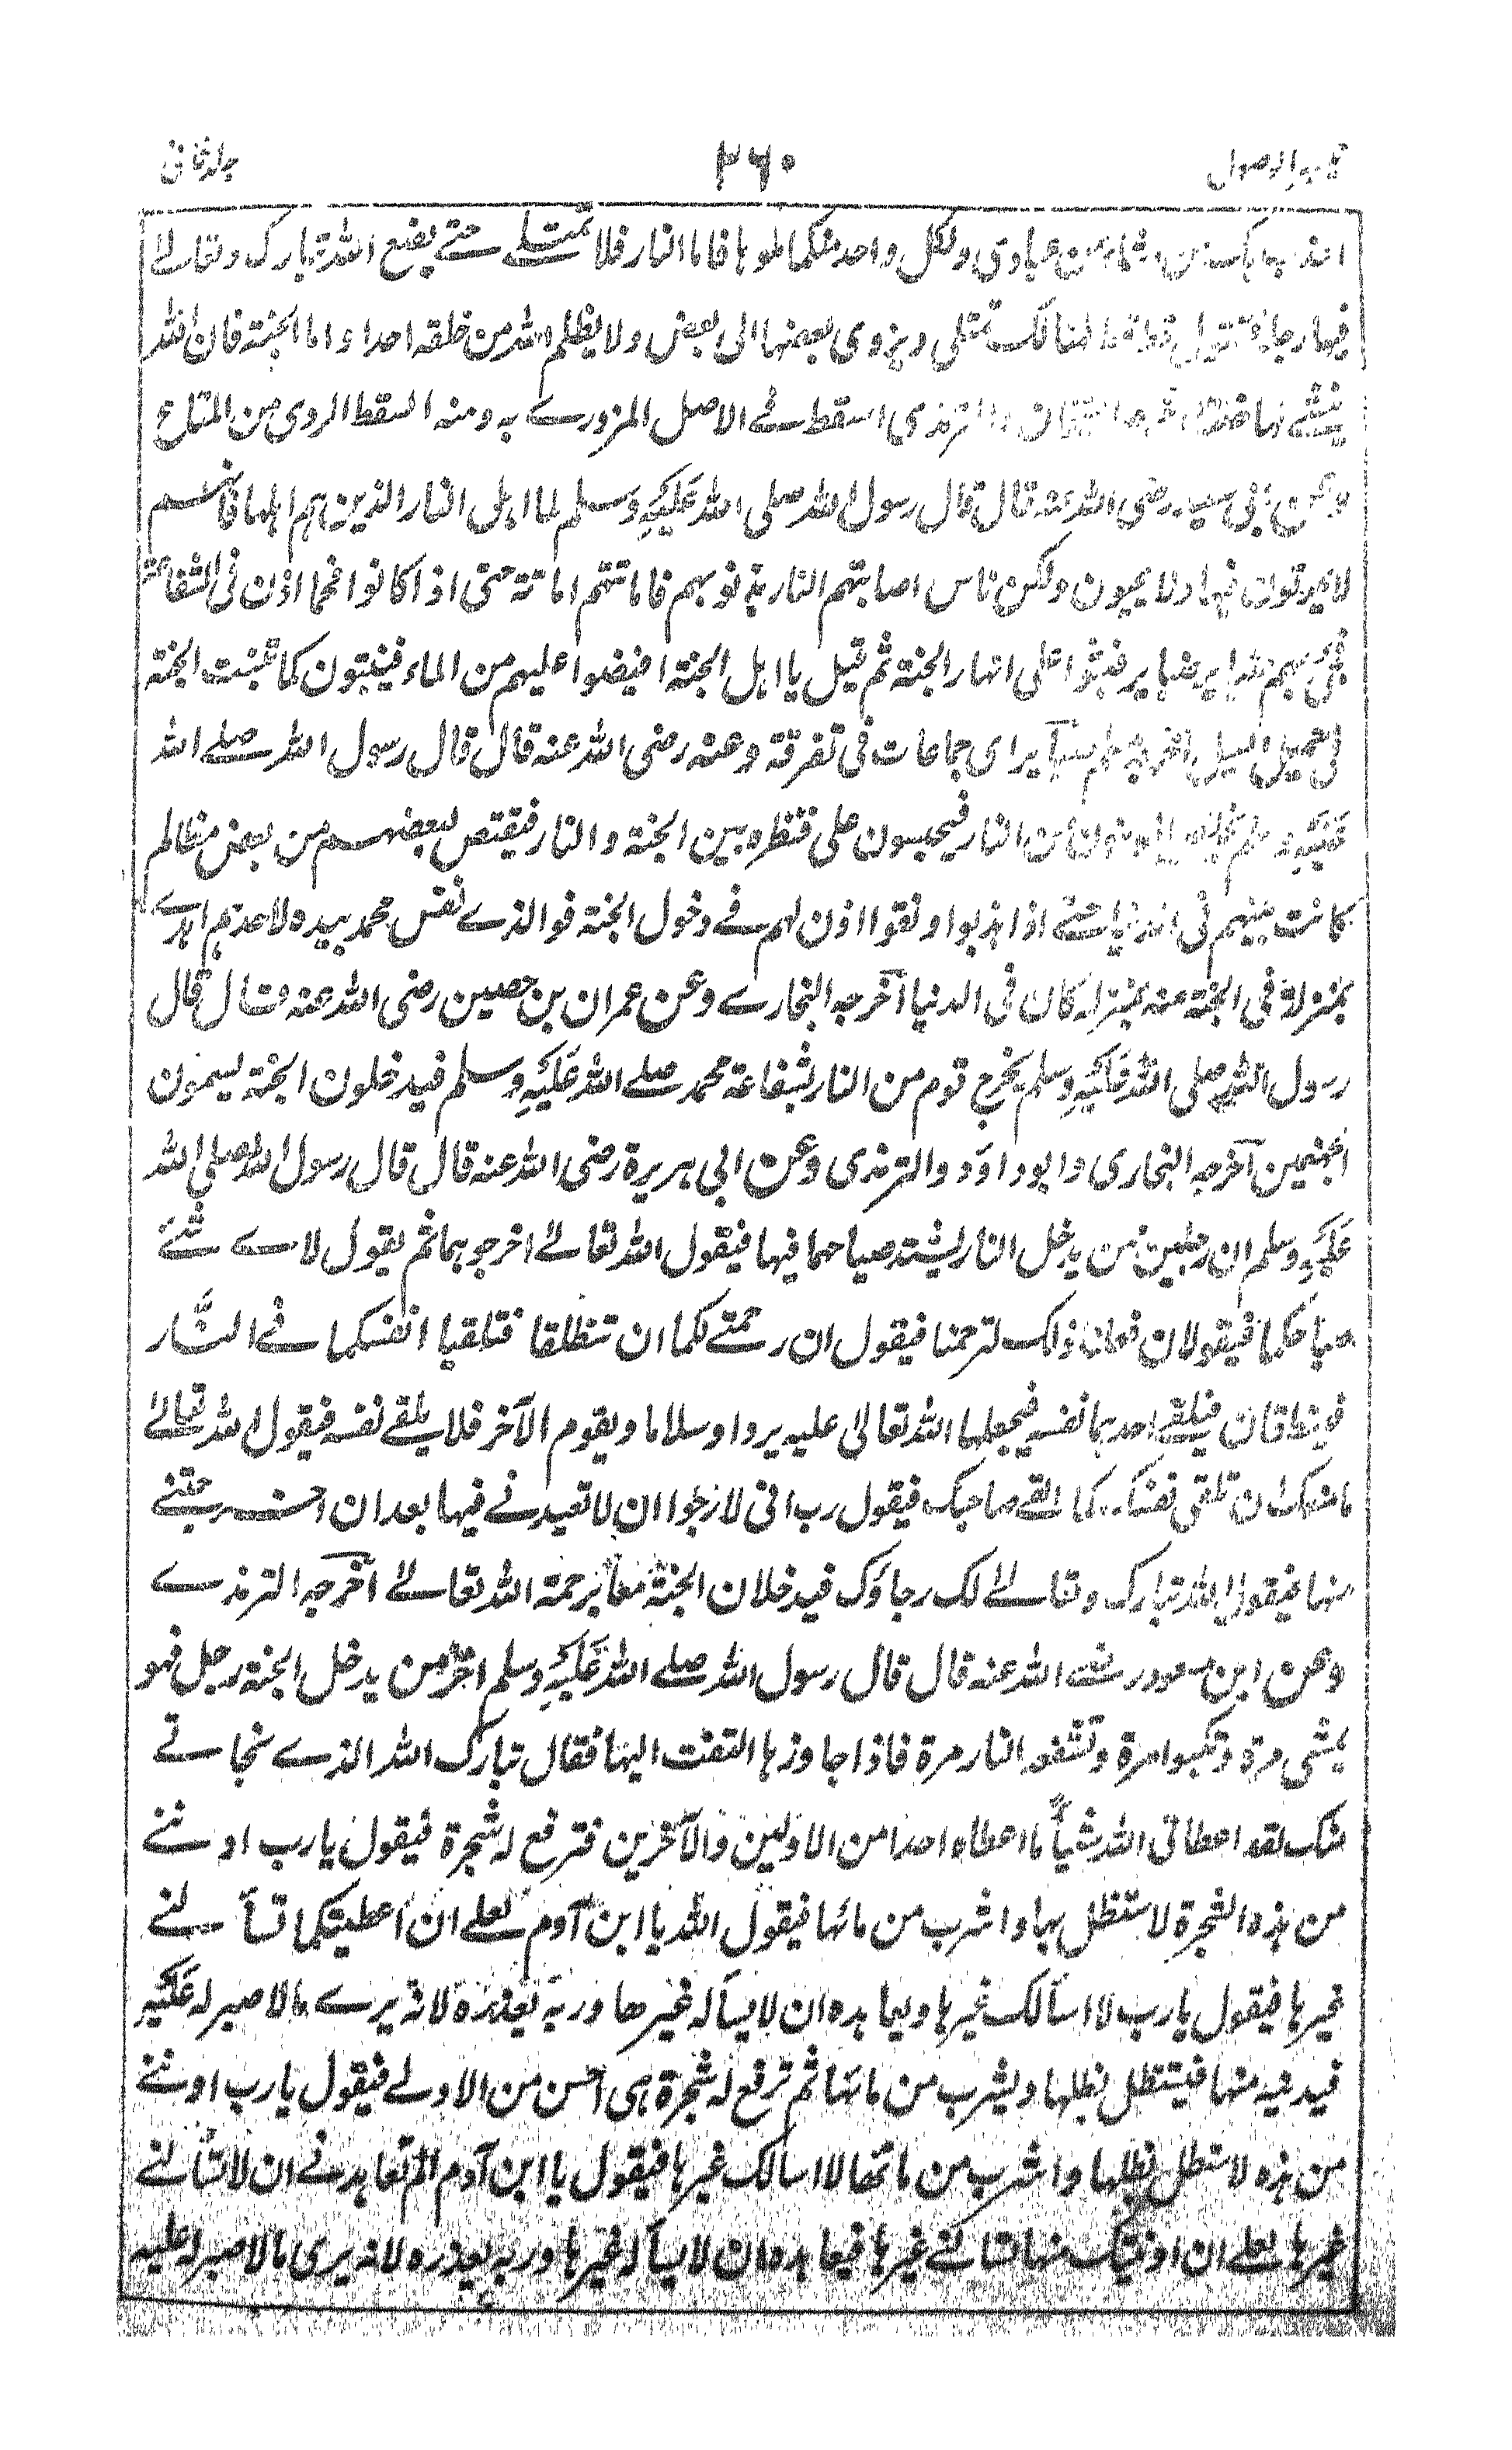 تيسير الاصول ٢٦٠ جلد ثانى
اعذب بك من اشاء من عبادى ولكل واحد منكما ملؤها فاما النار فلا تمتلے حتے يضع الله تبارك وتعالے
فيها رجله فتقول قط قط فهنالك تمتلى ويزوى بعضها الى بعض ولا يظلم الله من خلقه احدا واما الجنة فان الله
ينشئے لها خلقا اخرجه الشيخان والترمذى السقط فے الاصل المزورے به ومنه السقط الردى من المتاع
وعن ابى سعيد رضى الله عنه قال قال رسول الله صلى الله عَلَيْهِ وَسلم اما اهل النار الذين هم اهلها فانهم
لا يموتون فيها ولا يحيون ولكن ناس اصابتهم النار بذنوبهم فاماتتهم اماتة حتى اذا كانوا فحما اذن فى الشفاعة
فجئ بهم ضبائر ضبائر فبثوا على انهار الجنة ثم قيل يا اهل الجنة افيضوا عليهم من الماء فينبتون كما تنبت الحبة
فى حميل السيل اخرجه مسلم ضبآير اى جماعات فى تفرقة وعنه رضى الله عنه قال قال رسول الله صلے الله
عَلَيْهِ وسلم يخلص المؤمنون من النار فيحبسون على قنطره بين الجنة والنار فيقتص لبعضهم من بعض مظالم
كانت بينهم فى الدنيا حتے اذا هذبوا ونقوا اذن لهم فے دخول الجنة فوالذے نفس محمد بيده لاحدهم اهدے
بمنزلة فى الجنة منه بمنزله كان فى الدنيا آخرجه البخارے وعن عمران بن حصين رضى الله عنه قال قال
رسول الله صلى الله عَلَيْهِ وسلم يخرج قوم من النار بشفاعة محمد صلے الله عَلَيْهِ وسلم فيدخلون الجنة يسمون
الجهنميين آخرجه البخارى وابوداؤد والترمذى وعن ابى هريرة رضى الله عنه قال قال رسول الله صلى الله
عَلَيْهِ وسلم ان رجلين ممن يدخل النار يشتد صياحهما فيها فيقول الله تعالے اخرجوهما ثم يقول لاے شئے
صياحكما فيقولان فعلنا ذلك لترحمنا فيقول ان رحمتے لكما ان تنطلقا فتلقيا انفسكما فے النَّار
فينطلقان فيلقے احدهما نفسه فيجعلها الله تعالى عليه بردا وسلاما ويقوم الآخر فلا يلقے نفسه فيقول الله تعالےٰ
ما منعك ان تلقى نفسك كما القے صاحبك فيقول رب انى لارجوا ان لا تعيدنے فيها بعد ان اخرجتنے
منها فيقول الله تبارك وتعالے لك رجاؤك فيدخلان الجنة معا برحمة الله تعالے آخرجه الترمذے
وعن ابن مسعود رضے الله عنه قال قال رسول الله صلے الله عَلَيْهِ وسلم اخر من يدخل الجنة رجل فهو
يمشى مرة ويكبوا مرة وتسفعه النار مرة فاذا جاوزها التفت اليها فقال تبارك الله الذے نجانے
منك لقد اعطانى الله شيأً ما اعطاه احدا من الاولين والآخرين فترفع له شجرة فيقول يارب ادننے
من هذه الشجرة لاستظل بها واشرب من مائها فيقول الله يا ابن آدم لعلے ان اعطيتكها تسألنے
غيرها فيقول يارب لا اسألك غيرها ويعاهده ان لا يسأله غيرها وربه يعذره لانه يرے مالا صبر له عَلَيْهِ
فيدنيه منها فيستظل بظلها ويشرب من مائها ثم ترفع له شجرة هى احسن من الاولے فيقول يارب ادننے
من هذه لاستظل بظلها واشرب من مائها لا اسالك غيرها فيقول يا ابن آدم الم تعاهدنے ان لا تسألنے
غيرها لعلے ان ادنيتك منها تسالنے غيرها فيعاهده ان لا يسأله غيرها وربه يعذره لانه يرى مالا صبر له عليه